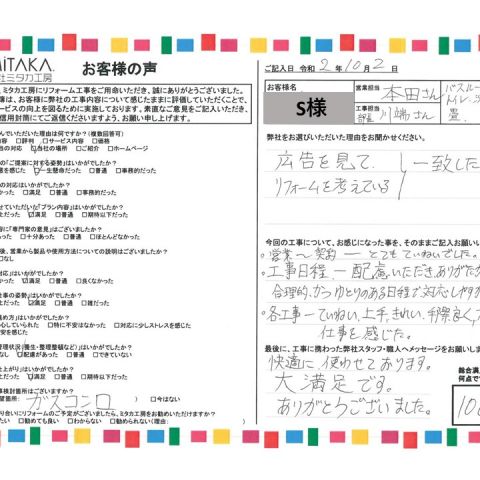 MiTAKA.
社ミタカ工房
お客様の声
ミタカ工房にリフォーム工事をご用命いただき、誠にありがとうございました。
簿は、お客様に弊社の工事内容について感じたままに評価していただくことで、
ービスの向上を図るために実施しております。素直なご意見をご記入いただき、
信用封筒にてご返送くださいますよう、お願い申し上げます。
んでいただいた理由は何ですか?(複数回答可)
内容 □評判 □サービス内容 □価格
当の対応 ☑会社の場所 □ご紹介 □ホームページ
の「ご提案に対する姿勢」はいかがでしたか?
を感じた ☑一生懸命だった □普通 □事務的だった
の対応はいかがでしたか?
かった □満足 □普通 □事務的だった
せていただいた「プラン内容」はいかがでしたか?
上だった ☑満足 □普通 □期待以下だった
に「専門家の意見」はございましたか?
あった □十分あった □普通 □ほとんどなかった
後、営業から製品や使用方法についての説明はございましたか?
□なし
対応」はいかがでしたか?
だった ☑満足 □普通 □良くなかった
仕事の姿勢」はいかがでしたか?
だった ☑満足 □普通 □雑だった
進め方」はいかがでしたか?
心していられた □特に不安はなかった □対応に少しストレスを感じた
安を感じた
管理状況(衛生・整理整頓など)」はいかがでしたか?
なし ☑配慮があった □普通 □できていない
仕上がり」はいかがでしたか?
上だった ☑満足 □普通 □期待以下だった
事検討箇所はございますか?
希望箇所: ガスコンロ ) □今はない
り合いにリフォームのご予定がございましたら、ミタカ工房をお勧めいただけますか?
たい □勧めても良い □わからない □勧められない(理由: )
ご記入日 令和 2年10月2日
お客様名
S様
営業担当
本田さん
工事担当
川端さん
バスルーム
畳.
弊社をお選びいただいた理由をお聞かせください。
広告を見て、
リフォームを考えている
一致した
今回の工事について、お感じになった事を、そのままご記入お願いい
・営業〜契約ーとてもていねいでした。
・工事日程ー配慮いただきありがたか
合理的、かつゆとりのある日程で対応しやすか
・各工事ーていねい、上手、きれい、手際良く、
仕事を感じた。
最後に、工事に携わった弊社スタッフ・職人へメッセージをお願いしま
快適に使わせております。
大満足です。
ありがとうございました。
総合満
何点で
100